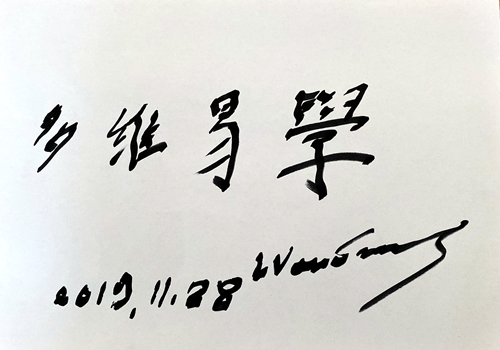 多维易學
2019.11.28